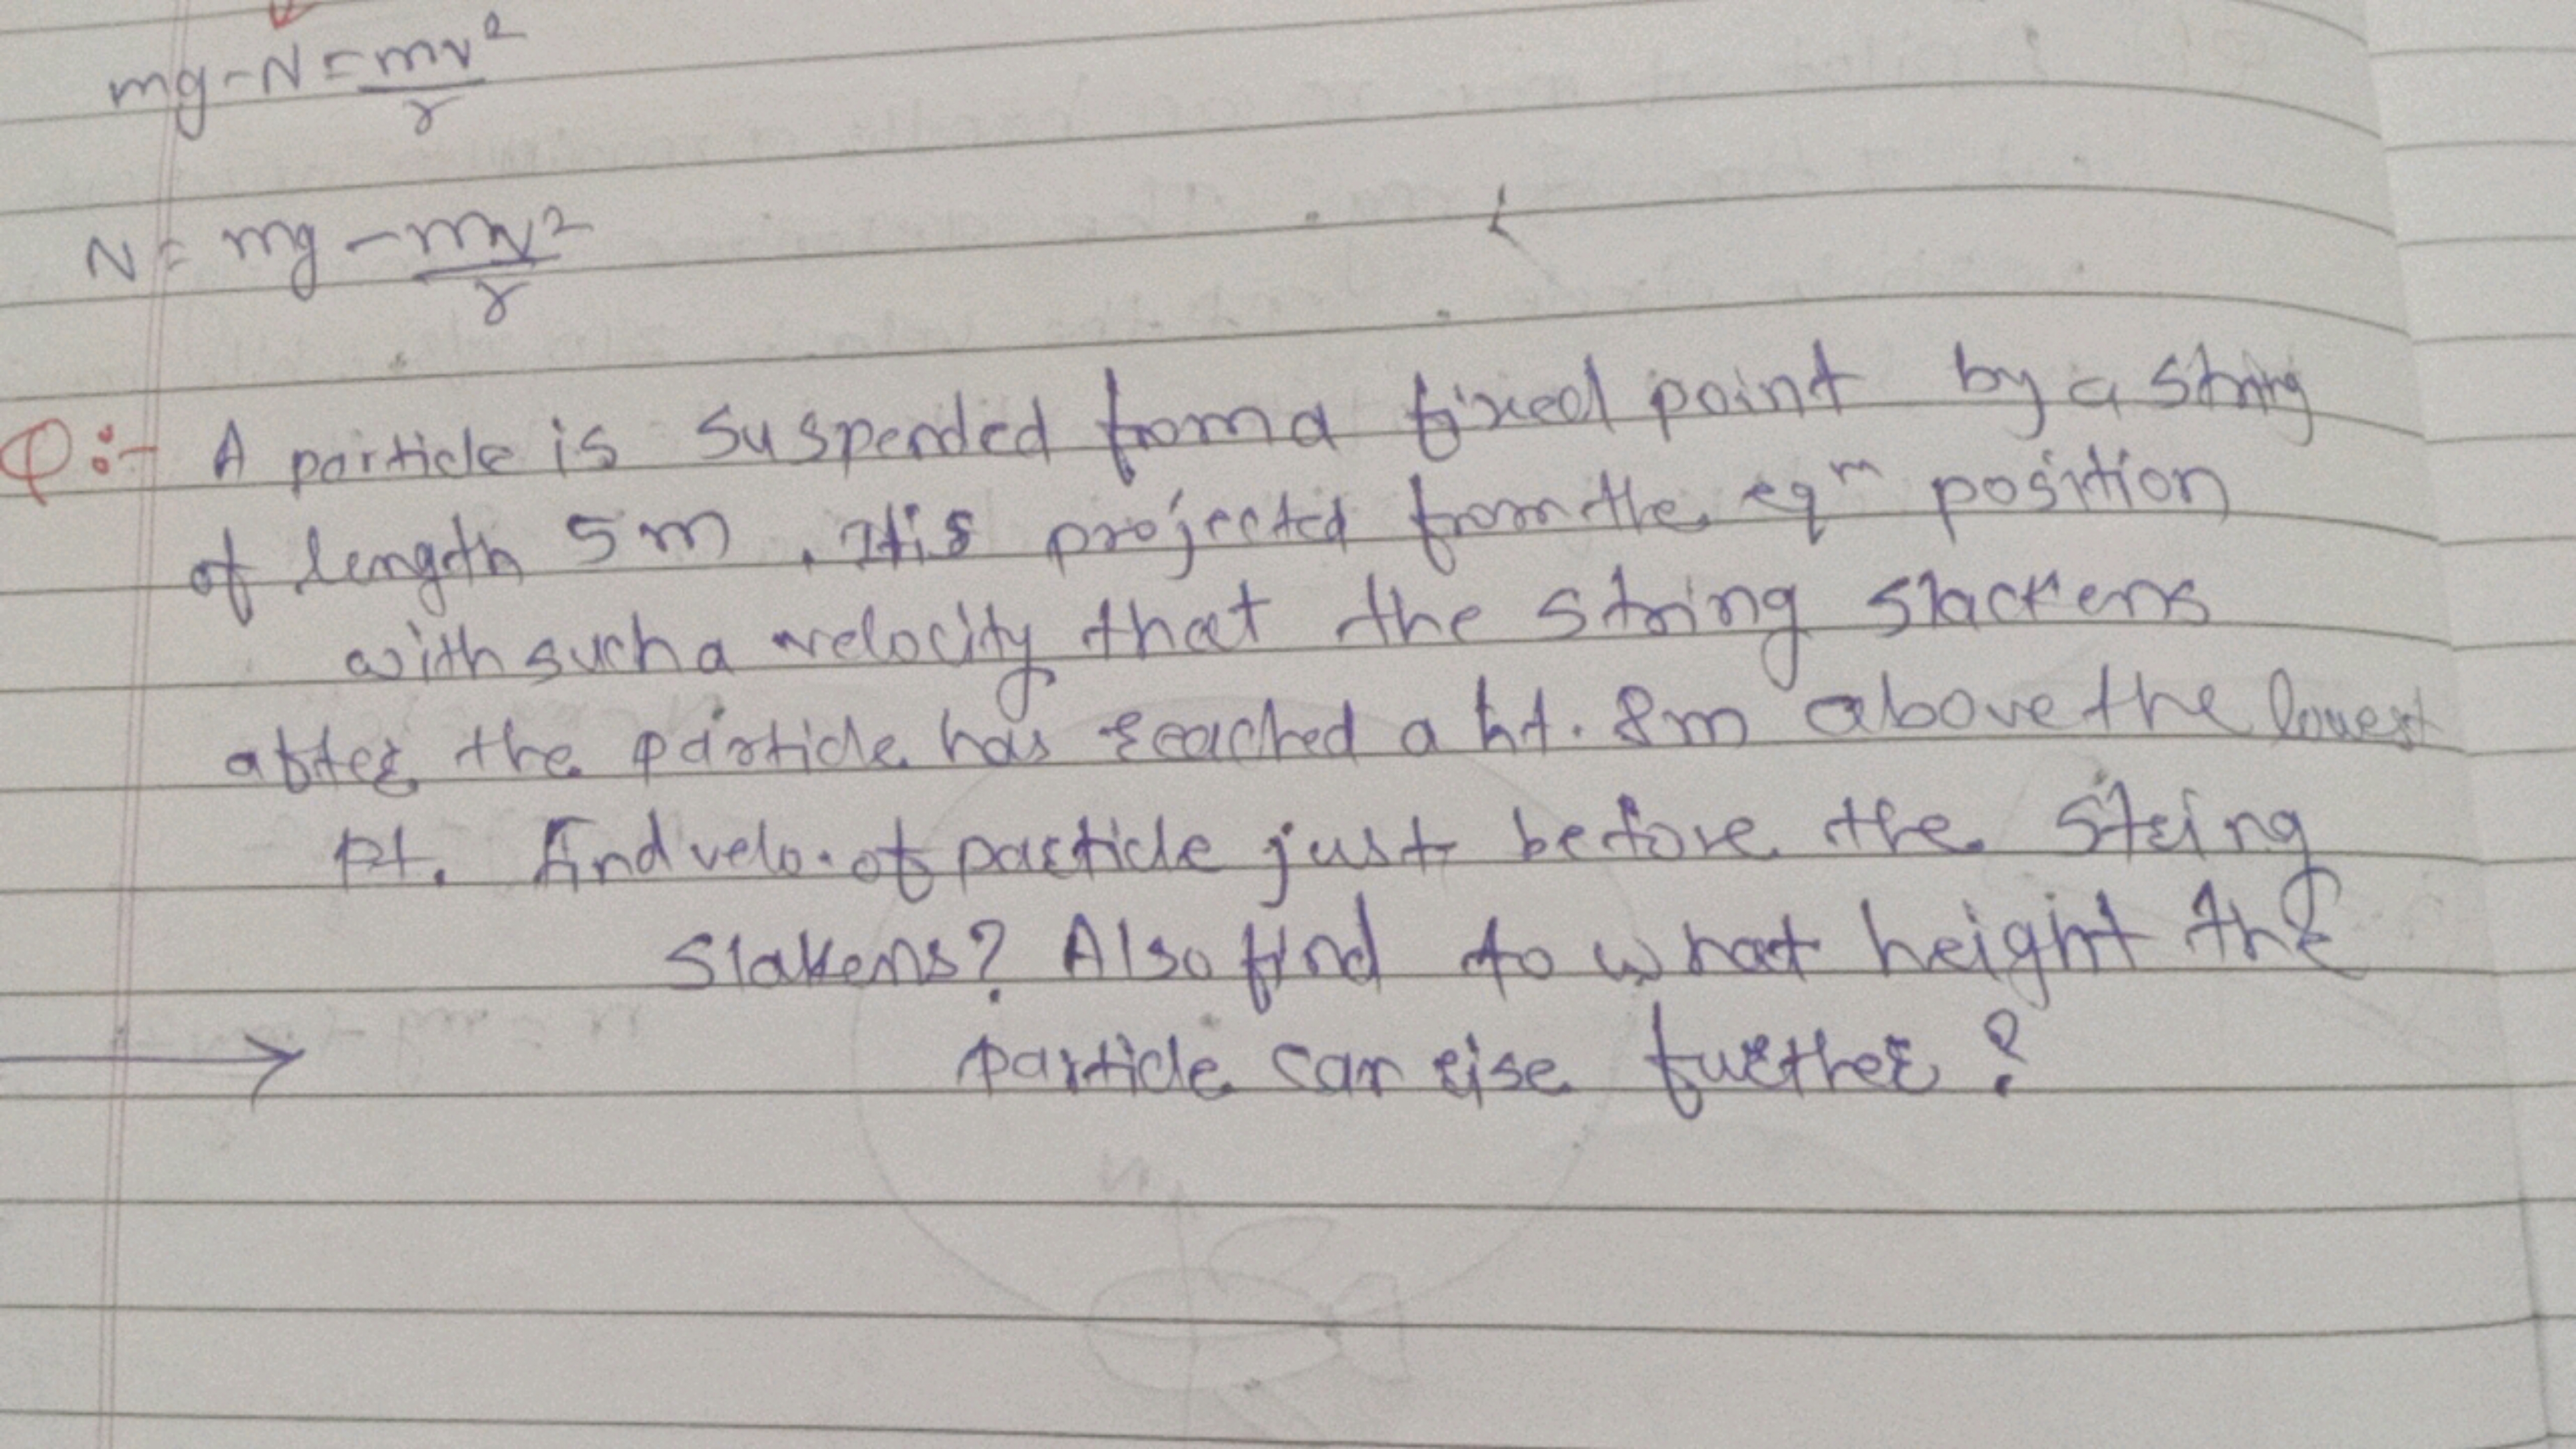 mg-N=mv²/r
N= mg-mv²/r
Q:- A particle is suspended from a fixed point by a string
of length 5m. It is projected from the eqm position
with such a velocity that the string slackens
after the particle has reached a ht. 8m above the lowest
pt. find velo. of particle just before the string
slakens? Also find to what height the
particle can rise further?